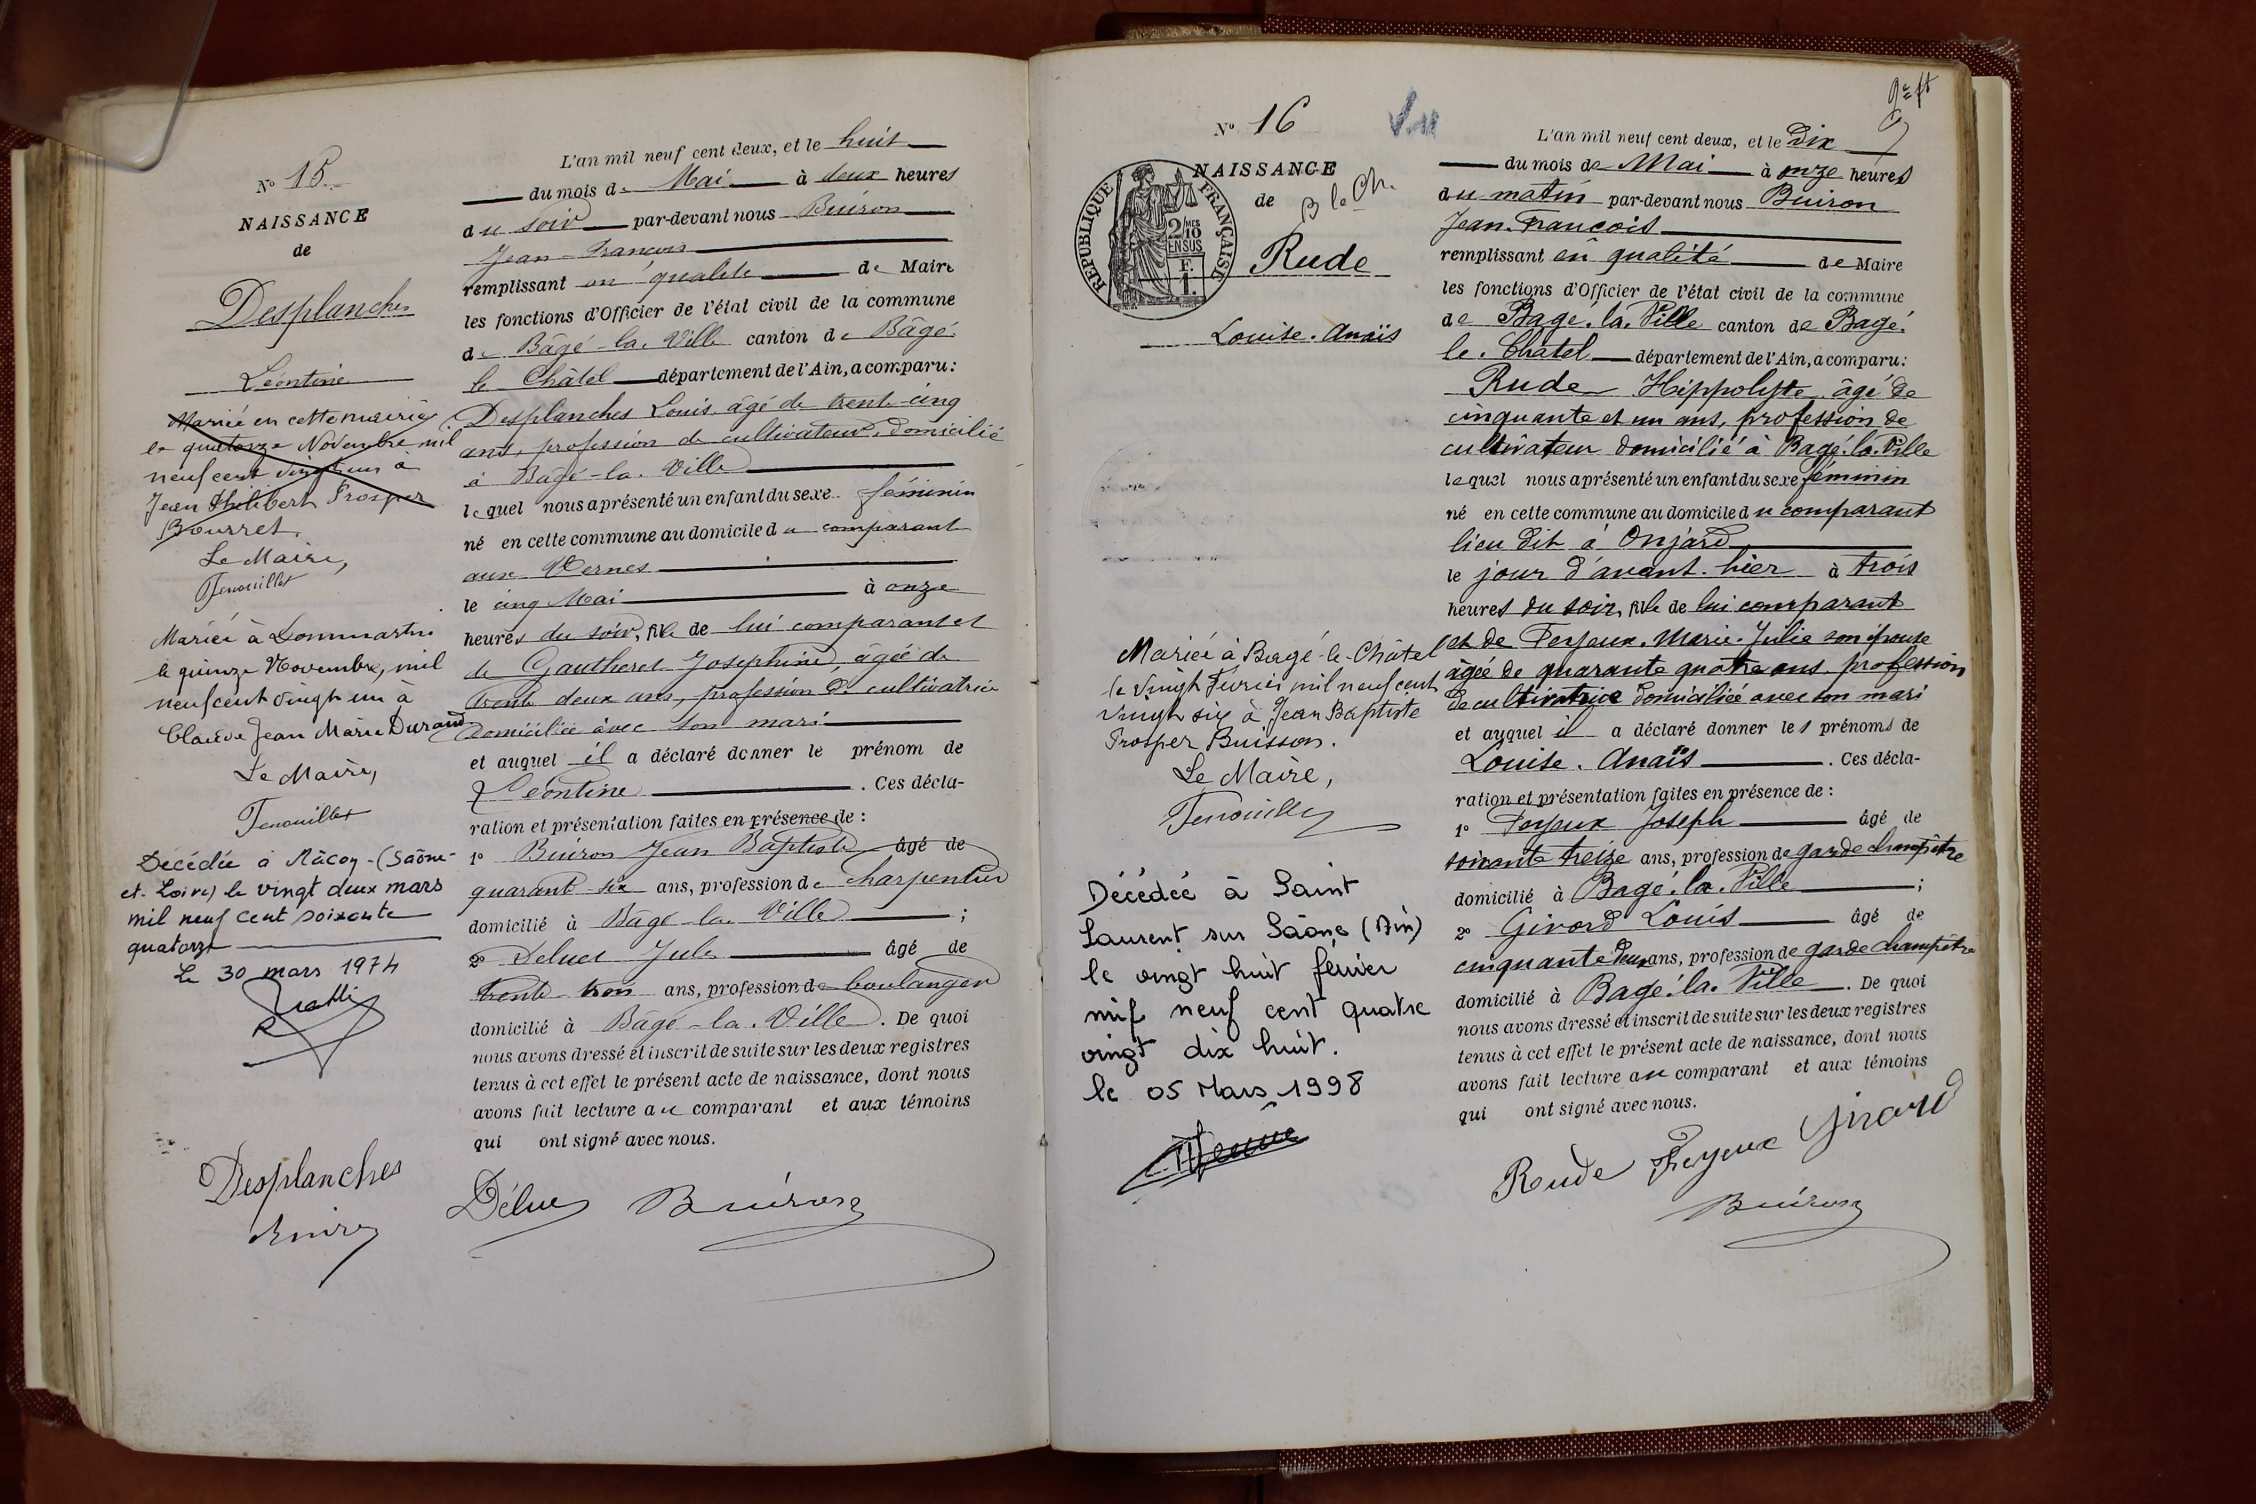 Nº 15
NAISSANCE
de
Desplanches
Léontine
Mariée en cette mairie
le quatorze Novembre mil
neuf cent vingt un à
Jean Philibert Prosper
Bourret.
Le Maire,
Fenouillet
Mariée à Dommartin
le quinze Novembre, mil
neuf cent vingt un à
Claude Jean Marie Durand
Le Maire,
Fenouillet
Décédée à Mâcon - (Saône-
et-Loire) le vingt deux mars
mil neuf cent soixante
quatorze
Le 30 mars 1974
L'an mil neuf cent deux, et le huit
du mois de Mai à deux heures
du soir par-devant nous Buiron
Jean-François
remplissant en qualité de Maire
les fonctions d'Officier de l'état civil de la commune
de Bâgé-la-Ville canton de Bâgé
le Châtel département de l'Ain, a comparu:
Desplanches Louis âgé de trente-cinq
ans, profession de cultivateur, domicilié
à Bâgé-la-Ville
lequel nous a présenté un enfant du sexe féminin
né en cette commune au domicile du comparant
aux Vernes
le cinq Mai à onze
heures du soir, fille de lui comparant et
de Gautheret Joséphine, âgée de
trente deux ans, profession de cultivatrice
domiciliée avec son mari
et auquel il a déclaré donner le prénom de
Léontine . Ces décla-
ration et présentation faites en présence de :
1º Buiron Jean Baptiste âgé de
quarante six ans, profession de charpentier
domicilié à Bâgé-la-Ville ;
2º Deluet Jules âgé de
trente-trois ans, profession de boulanger
domicilié à Bâgé-la-Ville. De quoi
nous avons dressé et inscrit de suite sur les deux registres
tenus à cet effet le présent acte de naissance, dont nous
avons fait lecture au comparant et aux témoins
qui ont signé avec nous.
Desplanches
Buiron
Nº 16
NAISSANCE
de
B le Ch.
REPUBLIQUE FRANÇAISE
2/10
EN SUS
Rude
Louise. Anaïs
Mariée à Bagé-le-Châtel
le vingt Février mil neuf cent
vingt six à Jean Baptiste
Prosper Buisson.
Le Maire,
Fenouillet
Décédée à Saint
Laurent sur Saône (Ain)
le vingt huit février
mil neuf cent quatre
vingt dix huit.
le 05 Mars 1998
L'an mil neuf cent deux, et le Dix
du mois de Mai à onze heures
du matin par-devant nous Buiron
Jean-François
remplissant en qualité de Maire
les fonctions d'Officier de l'état civil de la commune
de Bagé.la.Ville canton de Bagé.
le.Chatel département de l'Ain, a comparu:
Rude Hippolyte âgé de
cinquante et un ans, profession de
cultivateur domicilié à Bagé.la.Ville
lequel nous a présenté un enfant du sexe féminin
né en cette commune au domicile du comparant
lieu dit à Onjard
le jour d'avant-hier à trois
heures du soir, fille de lui comparant
et de Feyeux. Marie.Julie son épouse
âgée de quarante quatre ans, profession
de cultivatrice domiciliée avec son mari
et auquel il a déclaré donner les prénoms de
Louise. Anaïs . Ces décla-
ration et présentation faites en présence de :
1º Feyeux Joseph âgé de
soixante treize ans, profession de garde champêtre
domicilié à Bagé.la.Ville ;
2º Girord Louis âgé de
cinquante deux ans, profession de garde champêtre
domicilié à Bagé.la.Ville. De quoi
nous avons dressé et inscrit de suite sur les deux registres
tenus à cet effet le présent acte de naissance, dont nous
avons fait lecture au comparant et aux témoins
qui ont signé avec nous.
Rude Feyeux Girord
Buiron